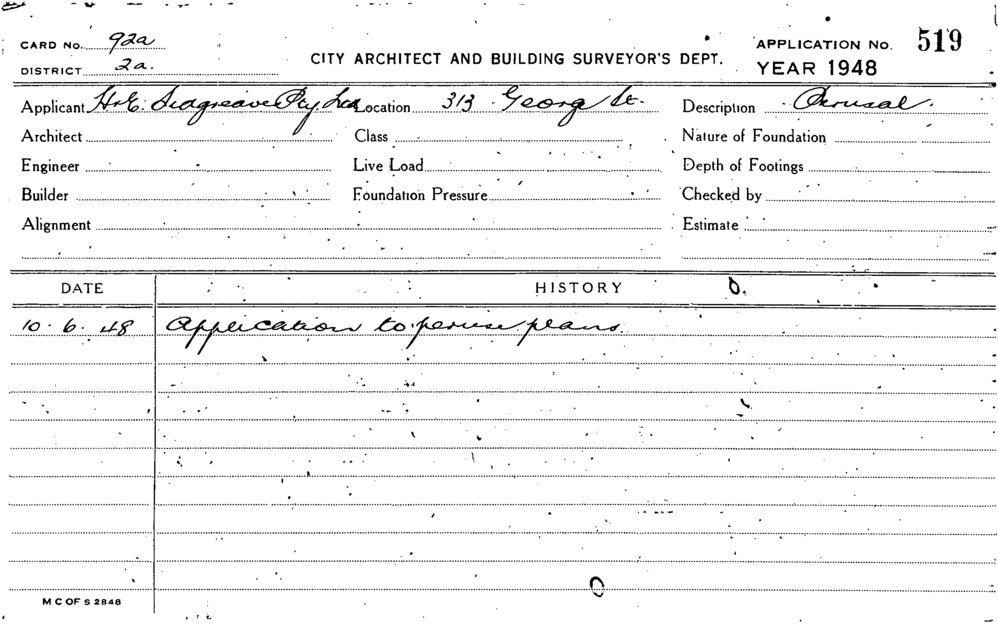 CARD No. 92a
DISTRICT 2a.
CITY ARCHITECT AND BUILDING SURVEYOR'S DEPT.
APPLICATION No. 519
YEAR 1948
Applicant H.E. Seagreave Pty Ltd Location 313 Georg St. Description Perusal.
Architect Class Nature of Foundation
Engineer Live Load Depth of Footings
Builder Foundation Pressure Checked by
Alignment Estimate
DATE HISTORY
10. 6. 48 Application to peruse plans.
M C OF S 2848